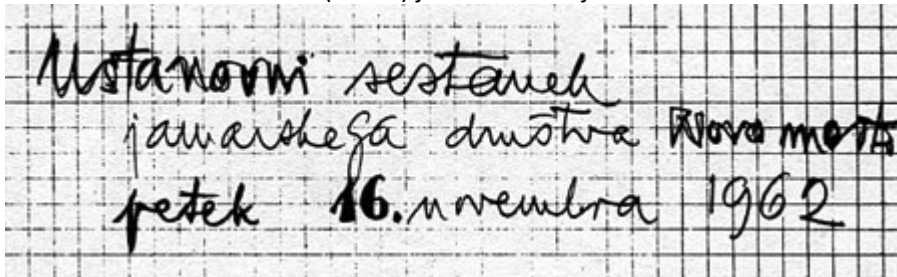 Ustanovni sestanek
jamarskega društva Novo mesto
petek 16. novembra 1962